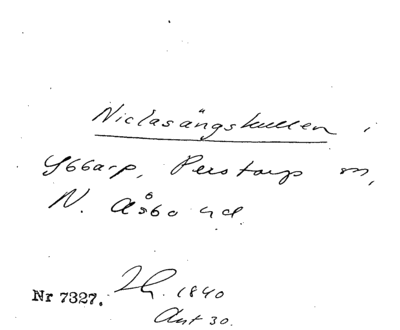 Niclasängskullen i
Ybbarp, Perstorp sn,
N. Åsbo hd.
Nr 7327. 1840
Akt 30.